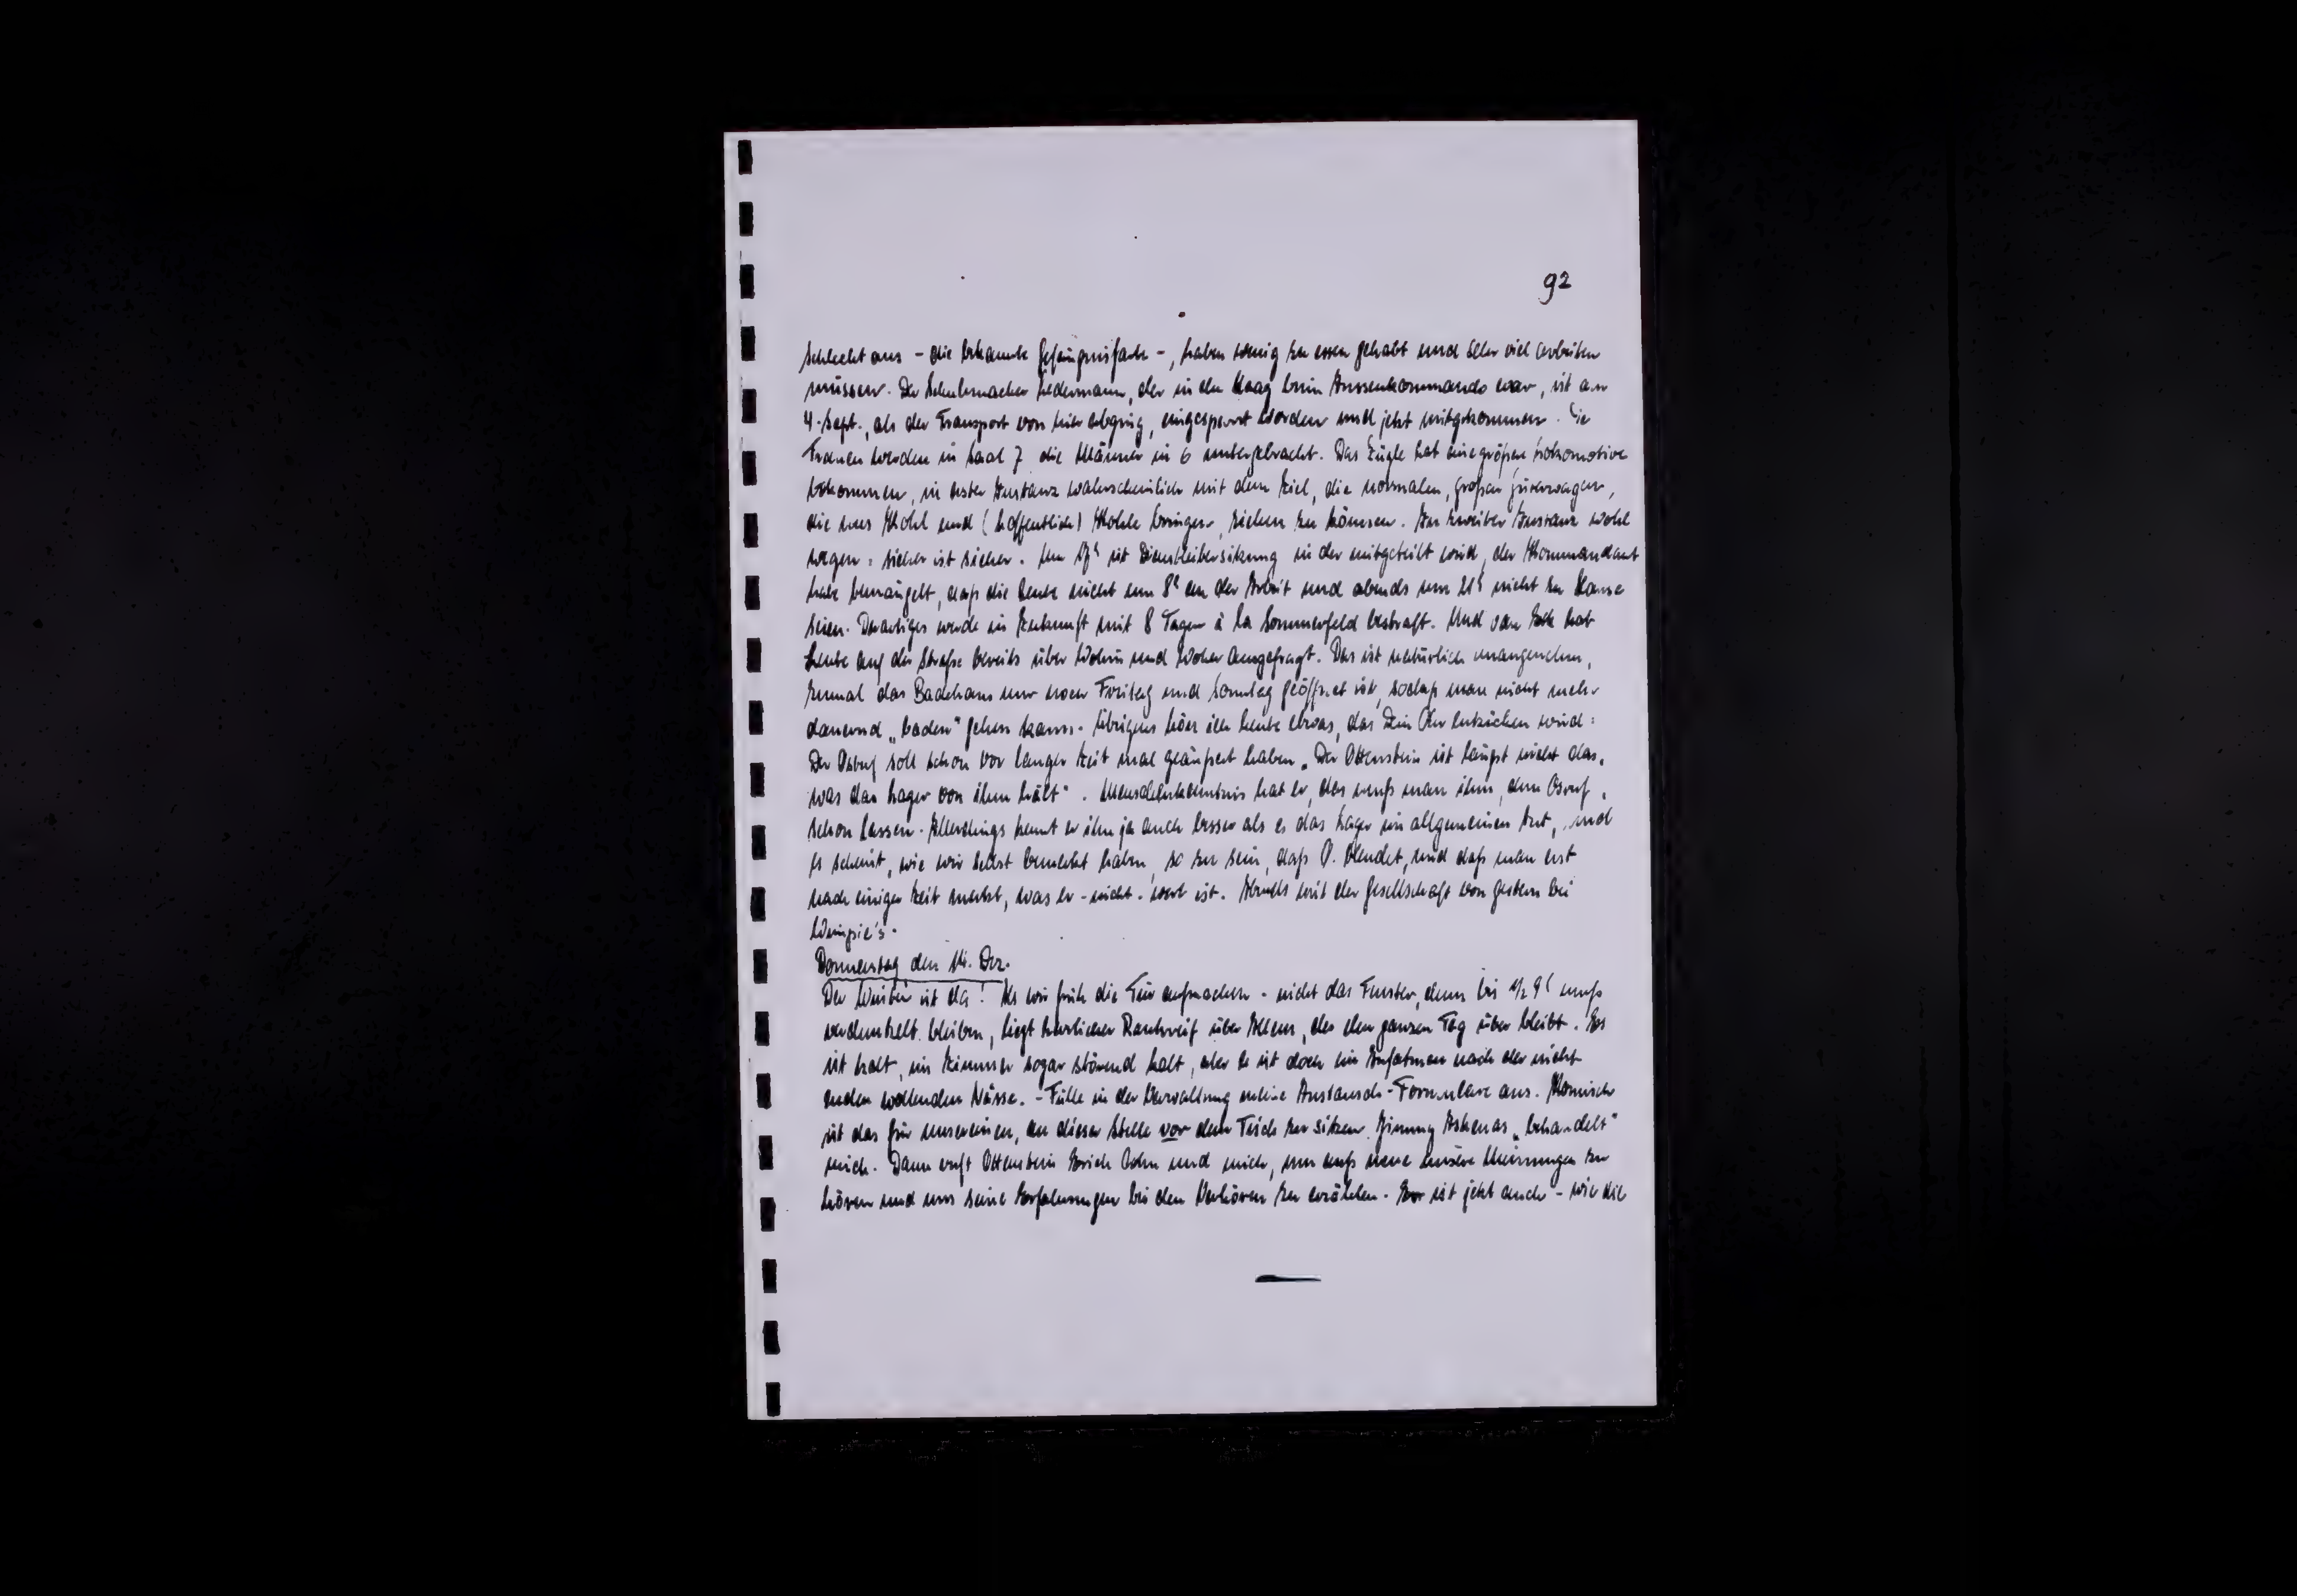 92
schlecht aus - die bekannte Gefängnisfarbe -, haben wenig zu essen gehabt und sehr viel arbeiten
müssen. Der Schuhmacher Ledermann, der in den Haag beim Aussenkommando war, ist am
4. Sept., als der Transport von hier abging, eingesperrt worden und jetzt mitgekommen. Die
Frauen werden in Saal 7 die Männer in 6 untergebracht. Das Zügle hat eine größere Lokomotive
bekommen, in erster Instanz wahrscheinlich mit dem Ziel, die normalen, großen Güterwagen,
die uns Kohl und (hoffentlich) Kohle bringen, ziehen zu können. In zweiter Instanz wohl
wegen: sicher ist sicher. Um ist Dienstleitersitzung in der mitgeteilt wird, der Kommandant
habe bemängelt, daß die Leute nicht um 8h an der Arbeit und abends um 21h nicht zu Hause
seien. Derartiges werde in Zukunft mit 8 Tagen à la Sommerfeld bestraft. Und van Eck hat
Leute auf der Straße bereits über Wohin und Woher ausgefragt. Das ist natürlich unangenehm,
zumal das Badehaus nur noch Freitag und Sonntag geöffnet ist, sodaß man nicht mehr
dauernd „baden“ gehen kann. Übrigens höre ich heute etwas, das Dein Ohr entzücken wird:
Der soll schon vor langer Zeit mal geäußert haben „Der Ottenstein ist längst nicht das,
was das Lager von ihm hält“. Menschenkenntnis hat er, das muß man ihm, dem
schon lassen. Allerdings kennt er ihn ja auch besser als es das Lager im allgemeinen tut, und
es scheint, wie wir selbst bemerkt haben, so zu sein, daß O. blendet, und daß man erst
nach einiger Zeit merkt, was er - nicht - wert ist. Abends mit der Gesellschaft von gestern bei
Wimpie's.
Donnerstag den 14. Dez.
Der Winter ist da! Als wir früh die Tür aufmachen - nicht das Fenster, denn bis 1/2 9h muß
verdunkelt bleiben, liegt herrlicher Rauhreif über Allem, der den ganzen Tag über bleibt. Es
ist kalt, im Zimmer sogar störend kalt, aber es ist doch ein Aufatmen nach der nicht
enden wollenden Nässe. - Fülle in der Verwaltung meine Austausch-Formulare aus. Komisch
ist das für unsereinen, an dieser Stelle vor dem Tisch zu sitzen. Jimmy Askenas „behandelt“
mich. Dann ruft Ottenstein Erich und mich, um aufs neue unsere Meinungen zu
hören und uns seine Erfahrungen bei den Verhören zu erzählen. Er ist jetzt auch - wie die